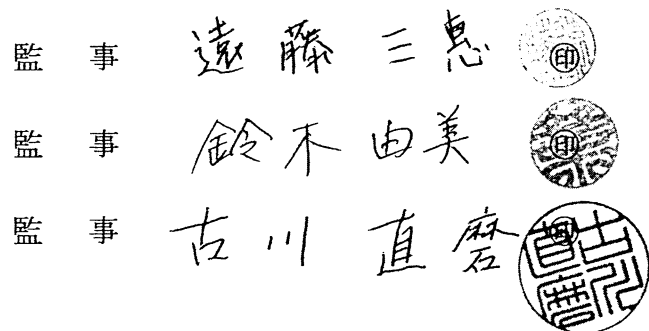 監 事 遠藤三恵 ㊞
監 事 鈴木由美 ㊞
監 事 古川直磨 ㊞